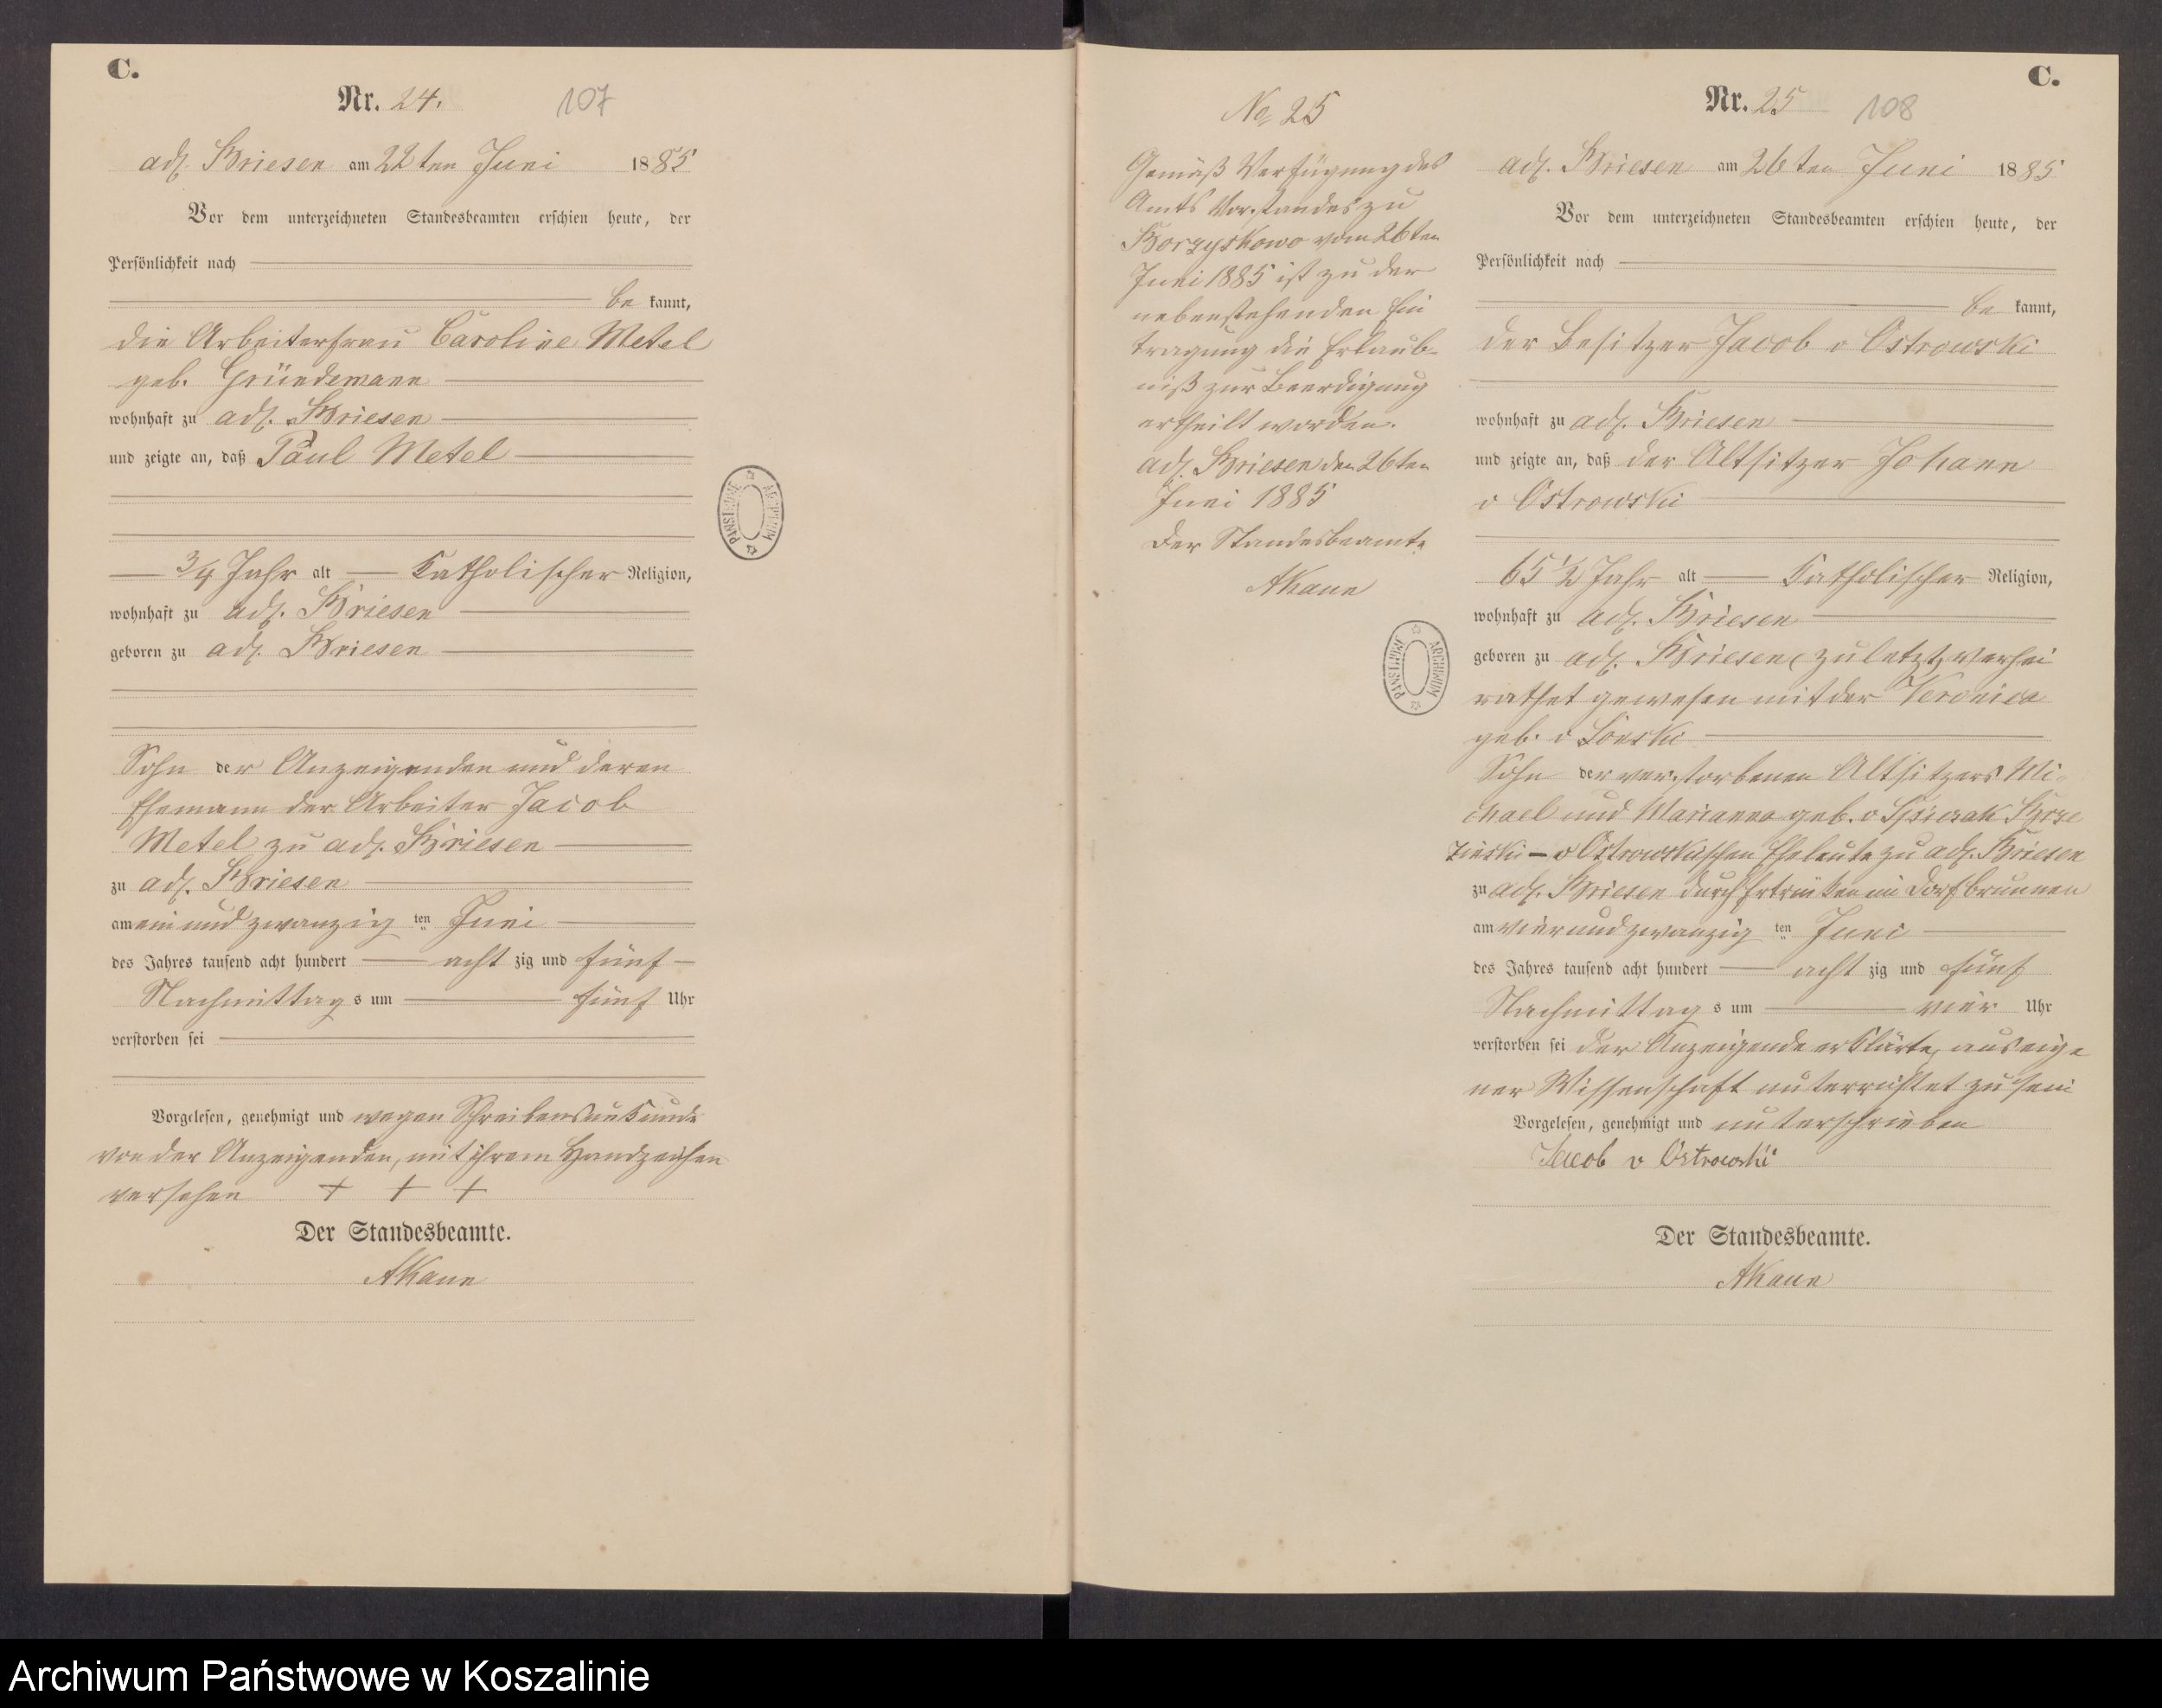 C.
Nr. 24.
107
adl. Briesen am 22ten Juni 1885
Vor dem unterzeichneten Standesbeamten erschien heute, der
Persönlichkeit nach
be kannt,
die Arbeiterfrau Caroline Metel
geb. Gründemann
wohnhaft zu adl. Briesen
und zeigte an, daß Paul Metel
3/4 Jahr alt Katholischer Religion,
wohnhaft zu adl. Briesen
geboren zu adl. Briesen
Sohn der Anzeigenden und deren
Ehemann der Arbeiter Jacob
Metel zu adl. Briesen
zu adl. Briesen
am ein und zwanzig ten Juni
des Jahres tausend acht hundert acht zig und fünf
Nachmittag s um fünf Uhr
verstorben sei
Vorgelesen, genehmigt und wegen Schreibensunkunde
von der Anzeigenden, mit ihrem Handzeichen
versehen + + +
Der Standesbeamte.
AKaun
PAŃSTWOWE ARCHIWUM
No. 25
Gemäß Verfügung des
Amts Vorstandes zu
Borzyskowo vom 26ten
Juni 1885 ist zu der
nebenstehenden Ein
tragung die Erlaub-
niß zur Beerdigung
ertheilt worden.
adl. Briesen den 26ten
Juni 1885
Der Standesbeamte
AKaun
PAŃSTWOWE ARCHIWUM
C.
Nr. 25
108
adl. Briesen am 26ten Juni 1885
Vor dem unterzeichneten Standesbeamten erschien heute, der
Persönlichkeit nach
be kannt,
der Besitzer Jacob v Ostrowski
wohnhaft zu adl. Briesen
und zeigte an, daß der Altsitzer Johann
v Ostrowski
65 1/2 Jahr alt Katholischer Religion,
wohnhaft zu adl. Briesen
geboren zu adl. Briesen, zuletzt verhei
rathet gewesen mit der Veronica
geb. v
Sohn der verstorbenen Altsitzers Mi-
chael und Marianna geb. v
v Ostrowskischen Eheleute zu adl. Briesen
zu adl. Briesen durch Ertrinken im Dorfbrunnen
am vierundzwanzig ten Juni
des Jahres tausend acht hundert acht zig und fünf
Nachmittag s um vier Uhr
verstorben sei der Anzeigende erklärte, aus eige
ner Wissenschaft unterrichtet zu sein
Vorgelesen, genehmigt und unterschrieben
Jacob v Ostrowski
Der Standesbeamte.
AKaun
Archiwum Państwowe w Koszalinie